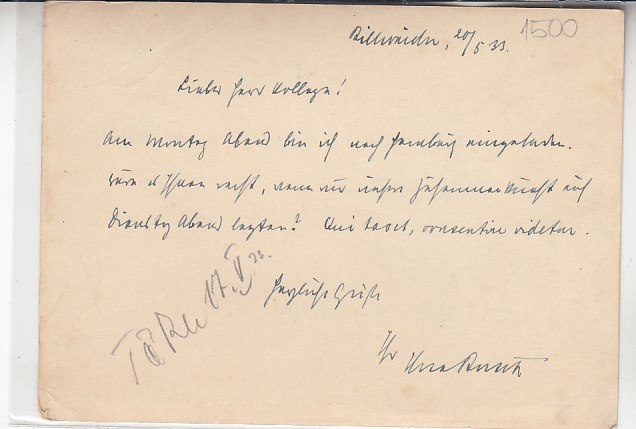 Billwerder, 20/5 33.
1500
Lieber Herr Kollege!
Am Montag Abend bin ich nach Hamburg eingeladen.
Wäre es Ihnen recht, wenn wir unsere Zusammenkunft auf
Dienstag Abend legten? Qui tacet, consentire videtur.
Herzliche Grüße
Ihr